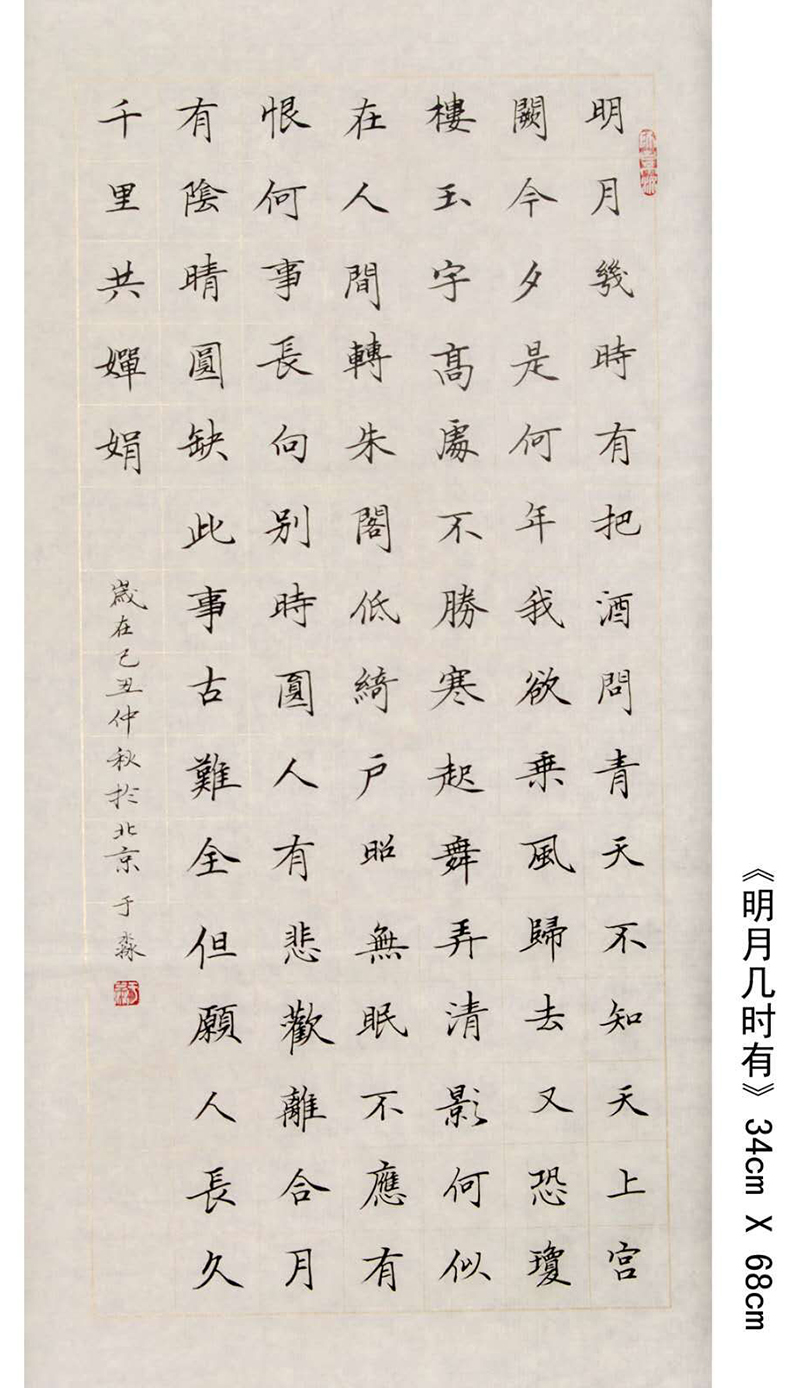 明月幾時有把酒問青天不知天上宮
闕今夕是何年我欲乗風歸去又恐瓊
樓玉宇髙處不勝寒起舞弄清影何似
在人間轉朱閣低綺户照無眠不應有
恨何事長向别時圓人有悲歡離合月
有陰晴圓缺此事古難全但願人長久
千里共嬋娟
歲在己丑仲秋於北京于淼
《明月几时有》34cm X 68cm